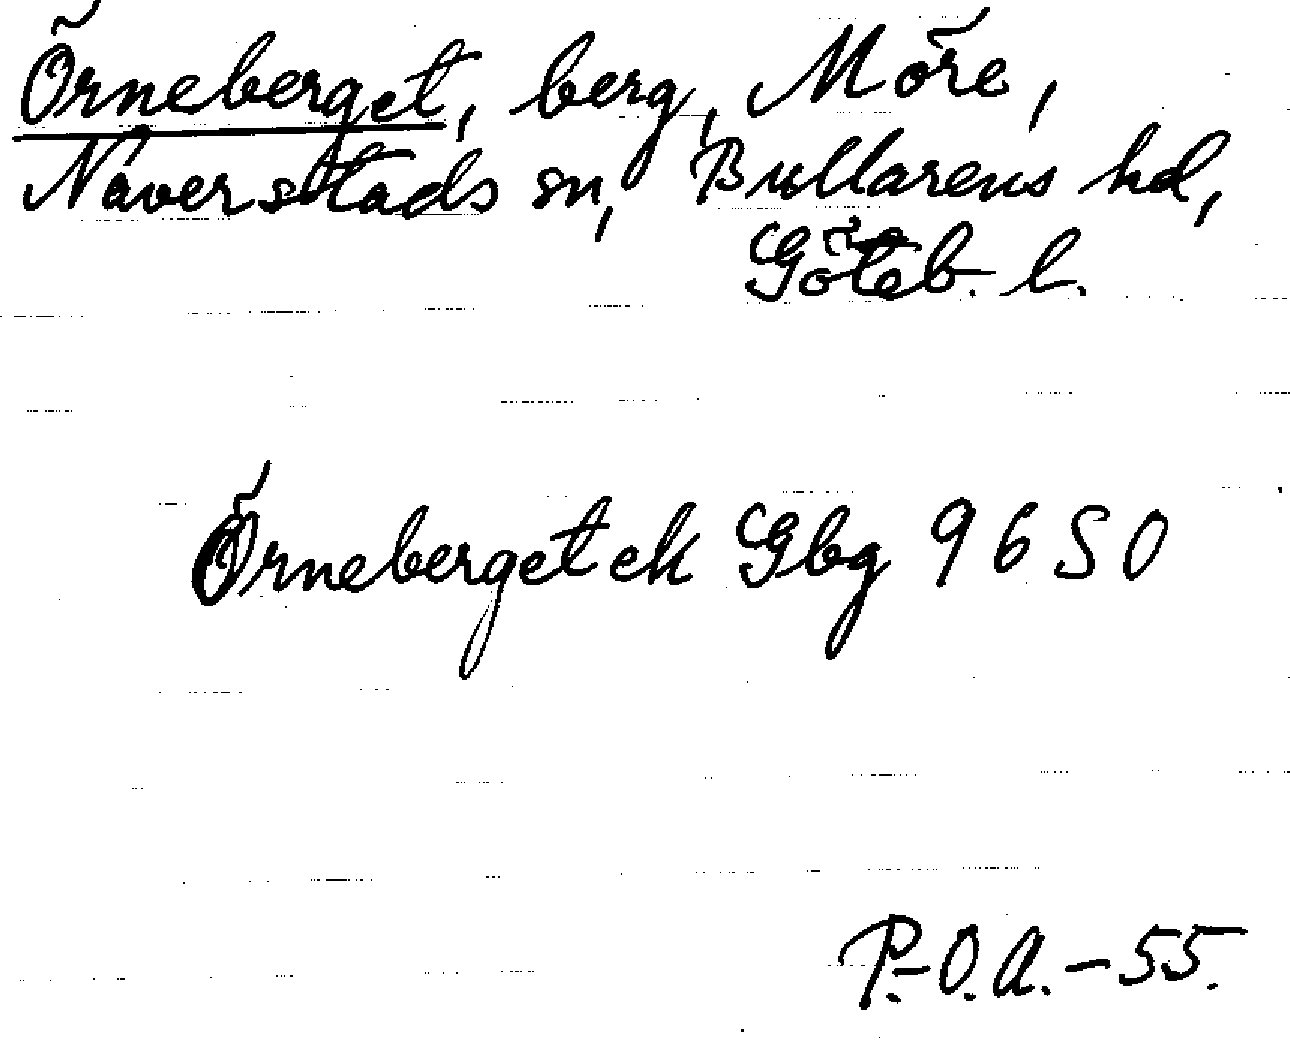 Örneberget, berg, Möre,
Naverstads sn, Bullarens hd,
Göteb. l.
Örneberget ek Gbg 9 6 S O
P.-O.A.-55.